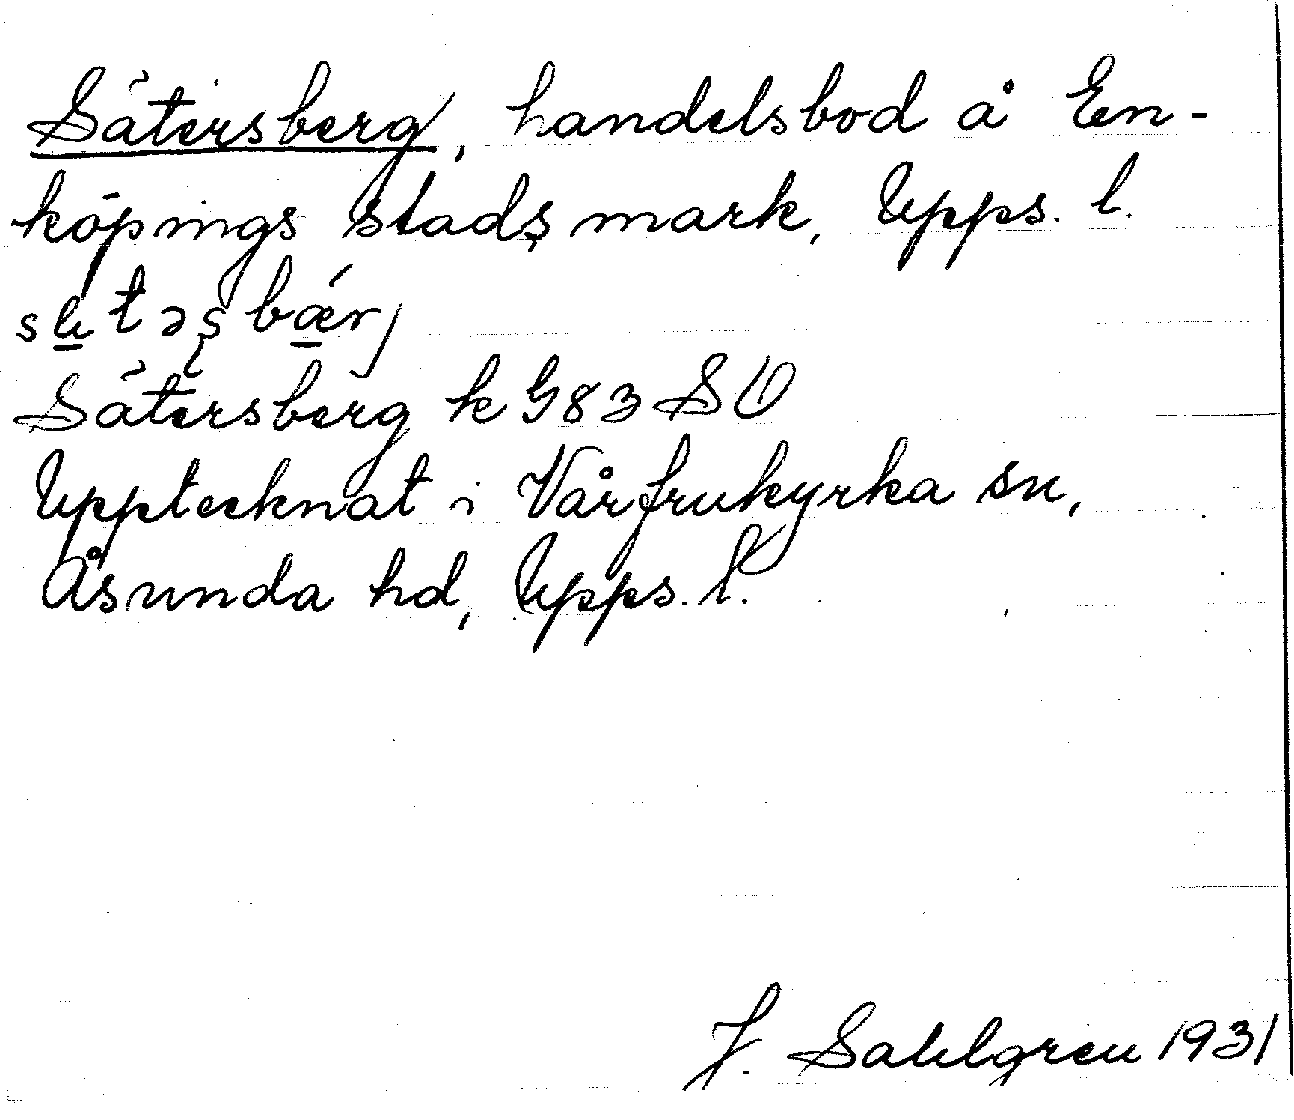 Sätersberg, handelsbod å En-
köpings stads mark, Upps. l.
Sätersberg k G83 SV
Upptecknat i Vårfrukyrka sn,
Åsunda hd, Upps. l.
J. Sahlgren 1931